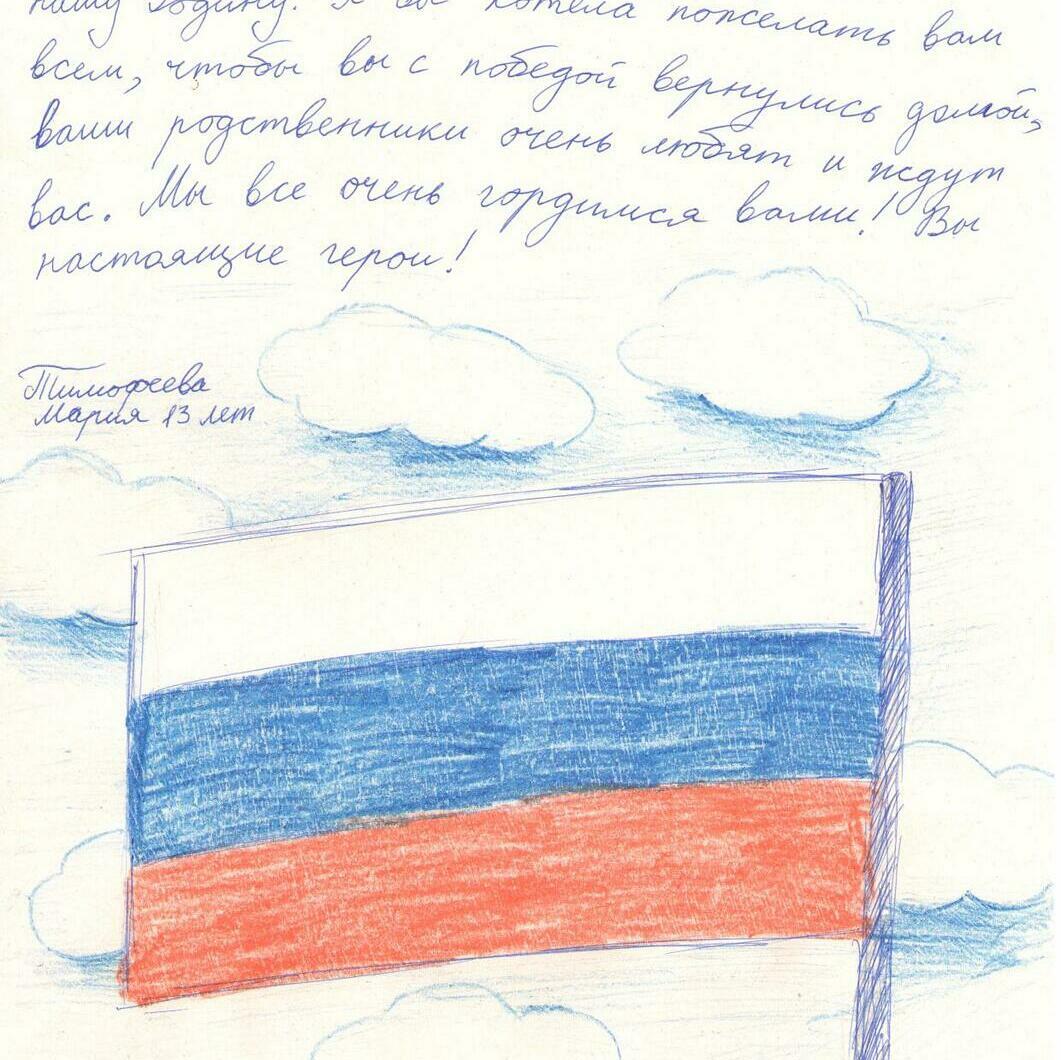 нашу Родину. Я бы хотела пожелать вам
всем, чтобы вы с победой вернулись домой,
ваши родственники очень любят и ждут
вас. Мы все очень гордимся вами! Вы
настоящие герои!
Тимофеева
Мария 13 лет